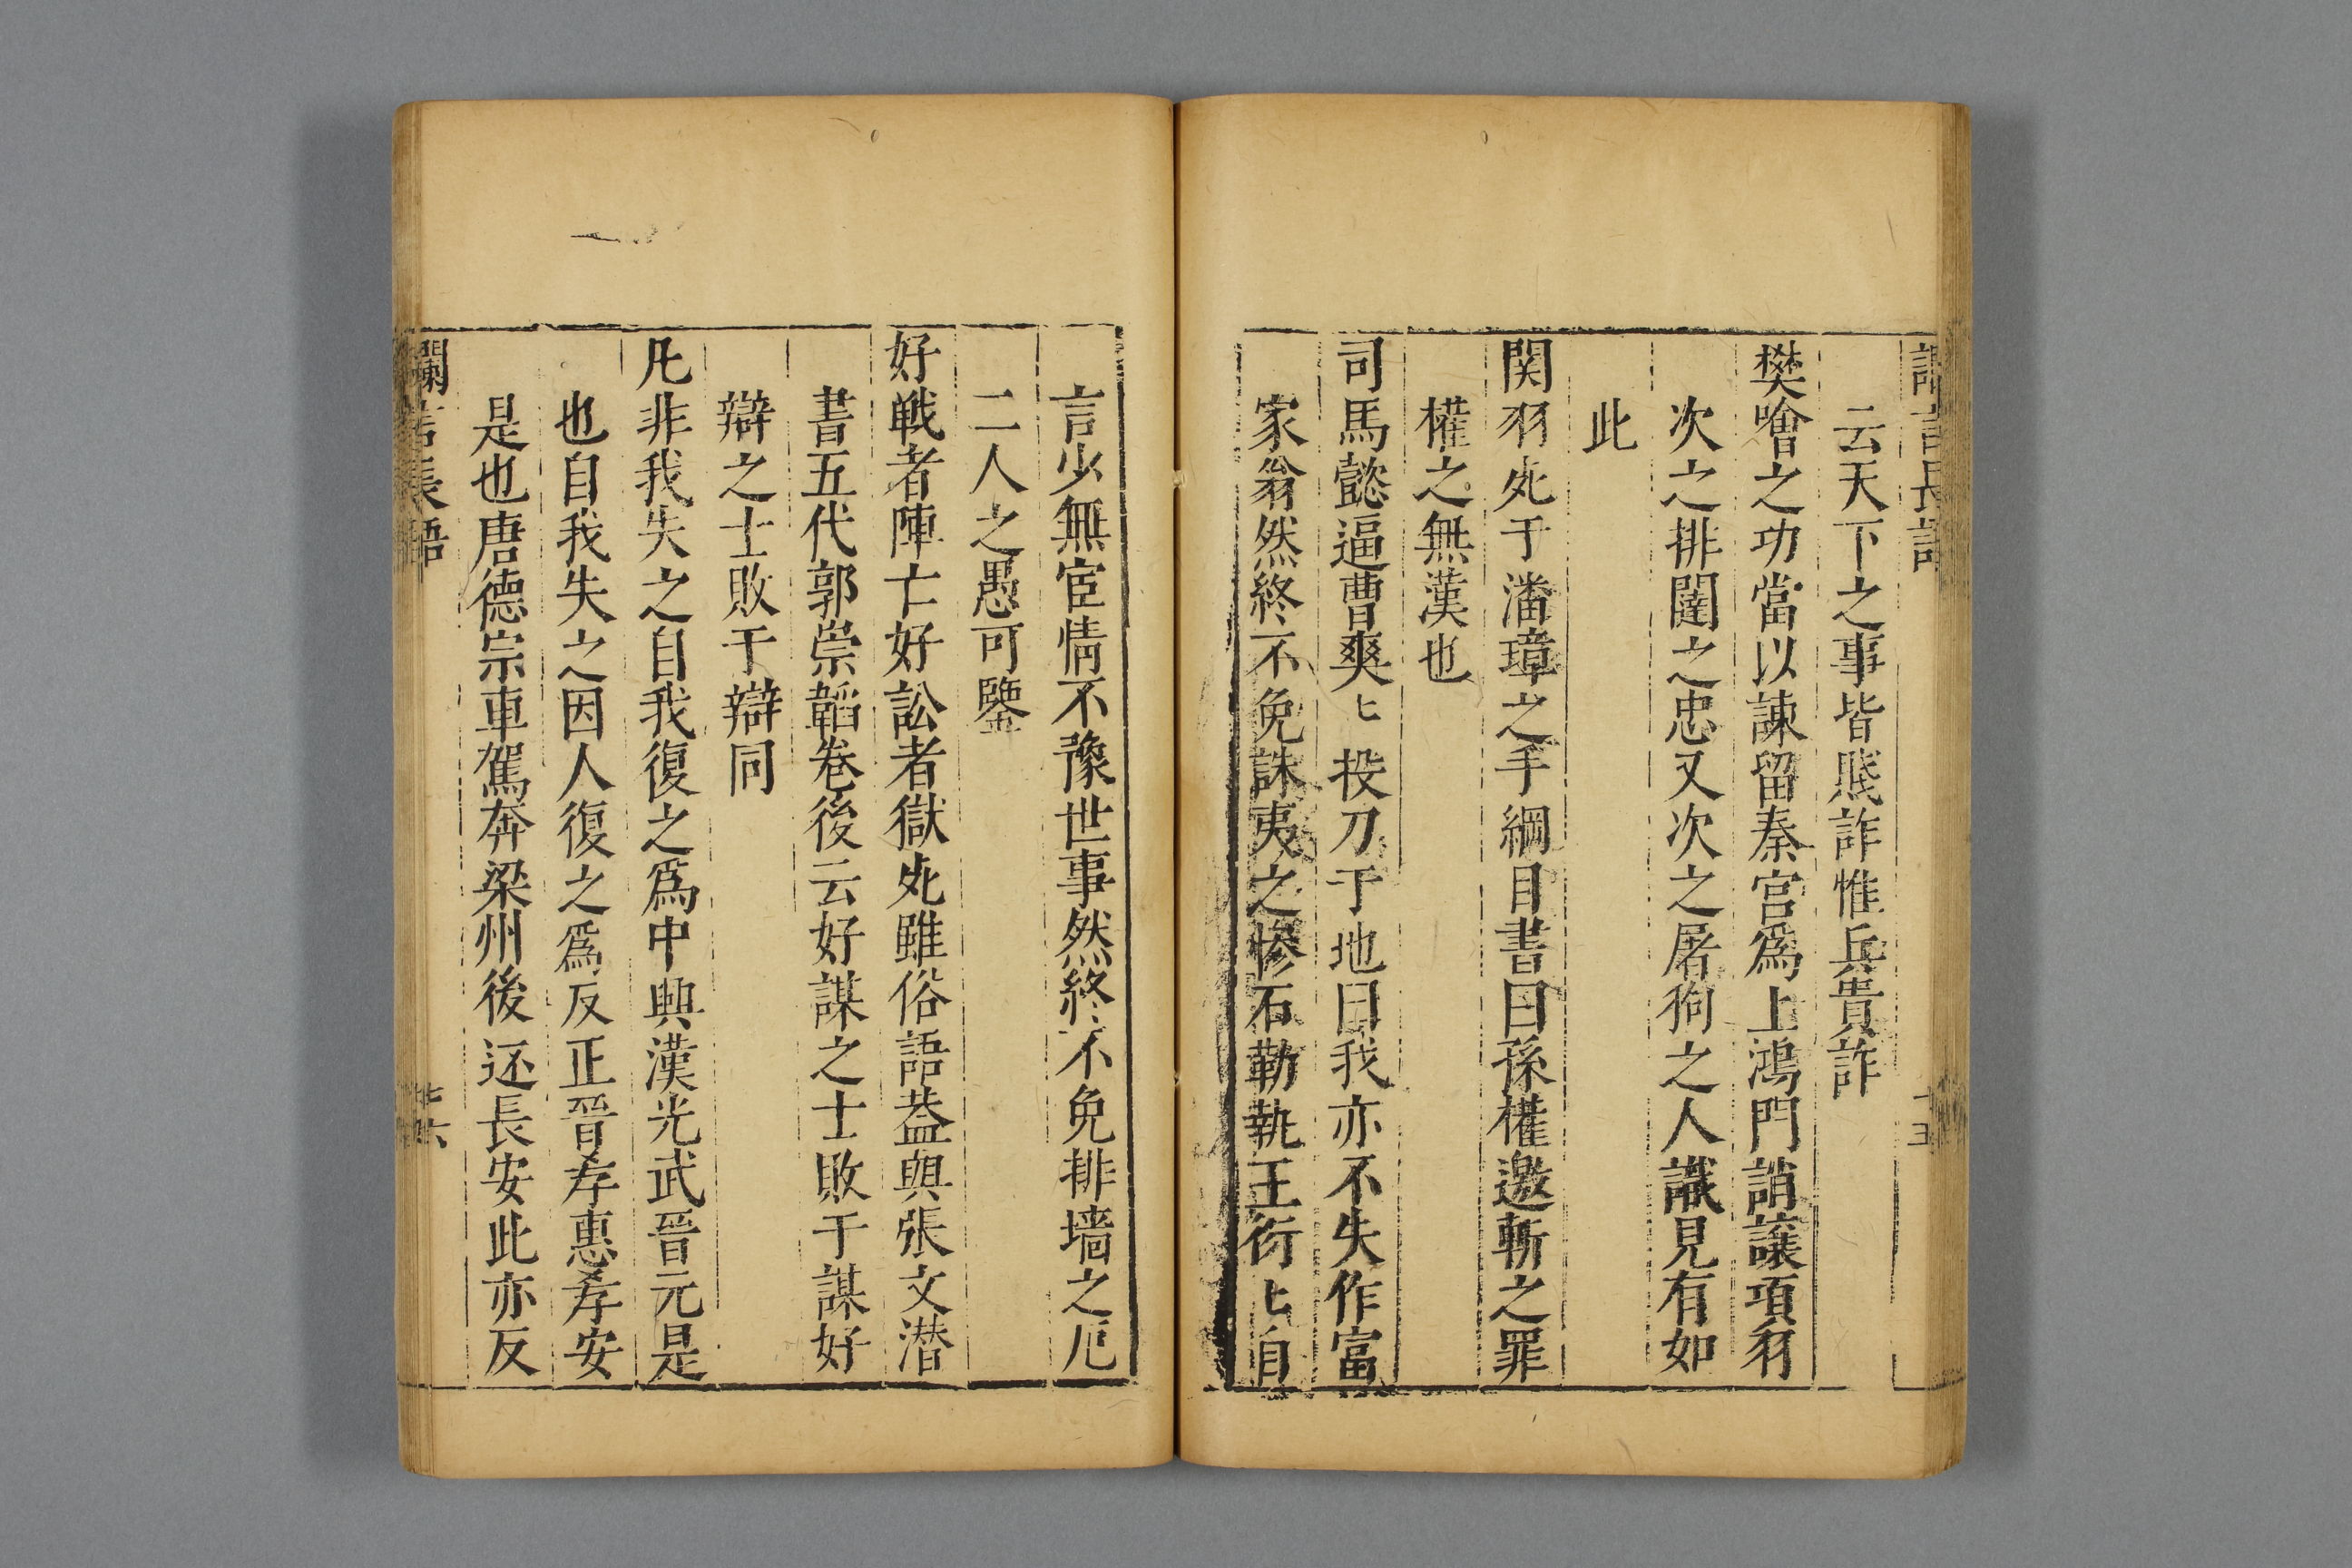 云天下之事皆賤詐惟兵貴詐
樊噲之功當以諫留秦宮爲上鴻門誚讓項羽
次之排闥之忠又次之屠狗之人識見有如
此
関羽死于潘璋之手綱目書曰孫權邀斬之罪
權之無漢也
司馬懿逼曹爽〻投刀于地曰我亦不失作富
家翁然終不免誅夷之慘石勒執王衍〻自
言少無宦情不豫世事然終不免排墻之厄
二人之愚可鑒
好戦者陣亡好訟者獄死雖俗語葢與張文潜
書五代郭崇韜卷後云好謀之士敗于謀好
辯之士敗于辯同
凡非我失之自我復之爲中興漢光武晉元是
也自我失之因人復之爲反正晉孝惠孝安
是也唐德宗車駕奔梁州後还長安此亦反
長語